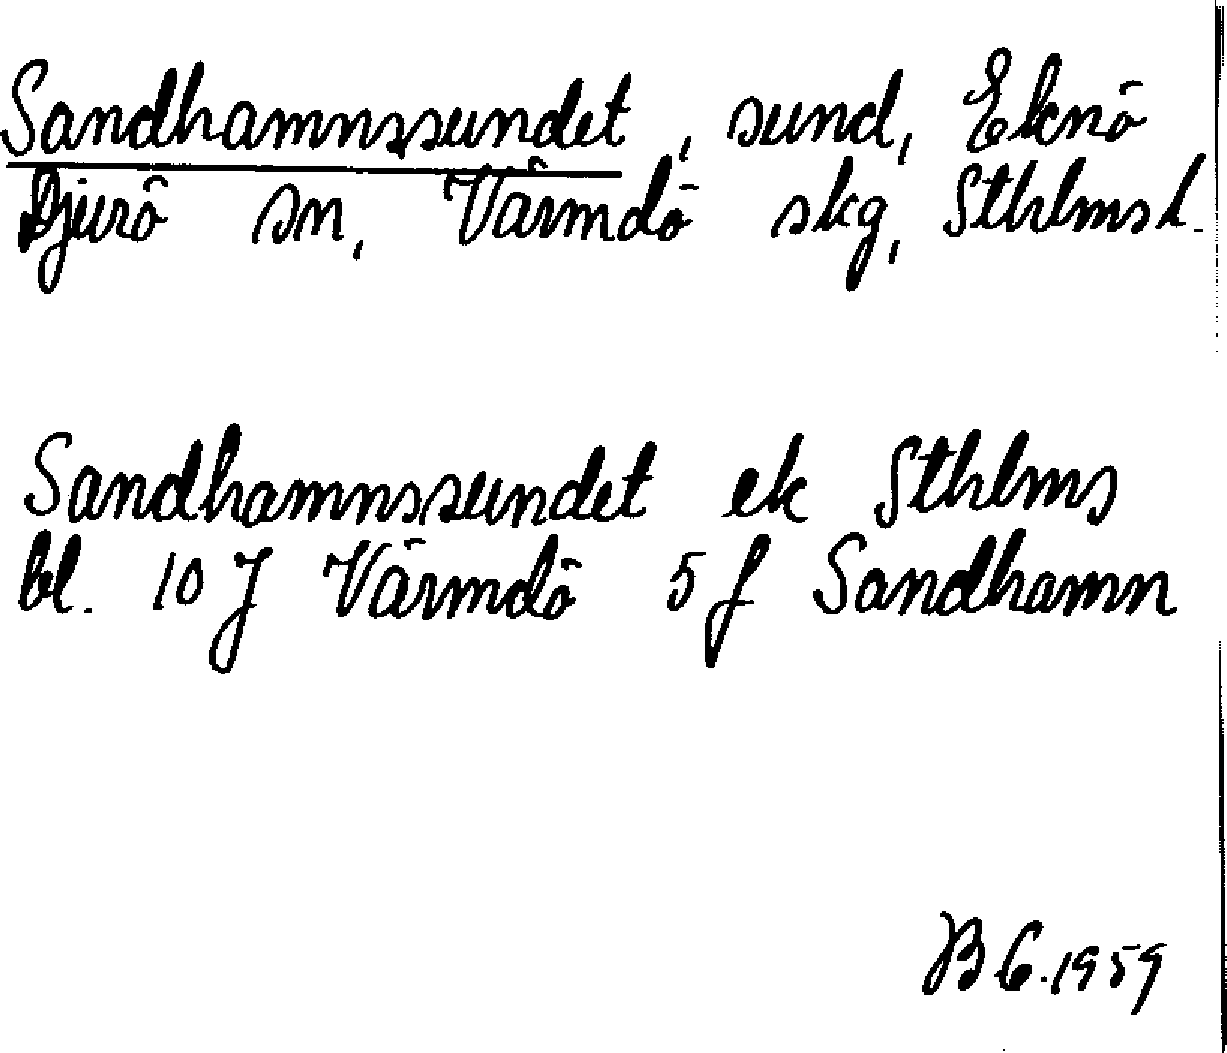 Sandhamnssundet, sund, Eknö
Djurö sn, Värmdö skg, Sthlms l.
Sandhamnssundet ek Sthlms
bl. 10 J Värmdö 5 f Sandhamn
B G. 1959